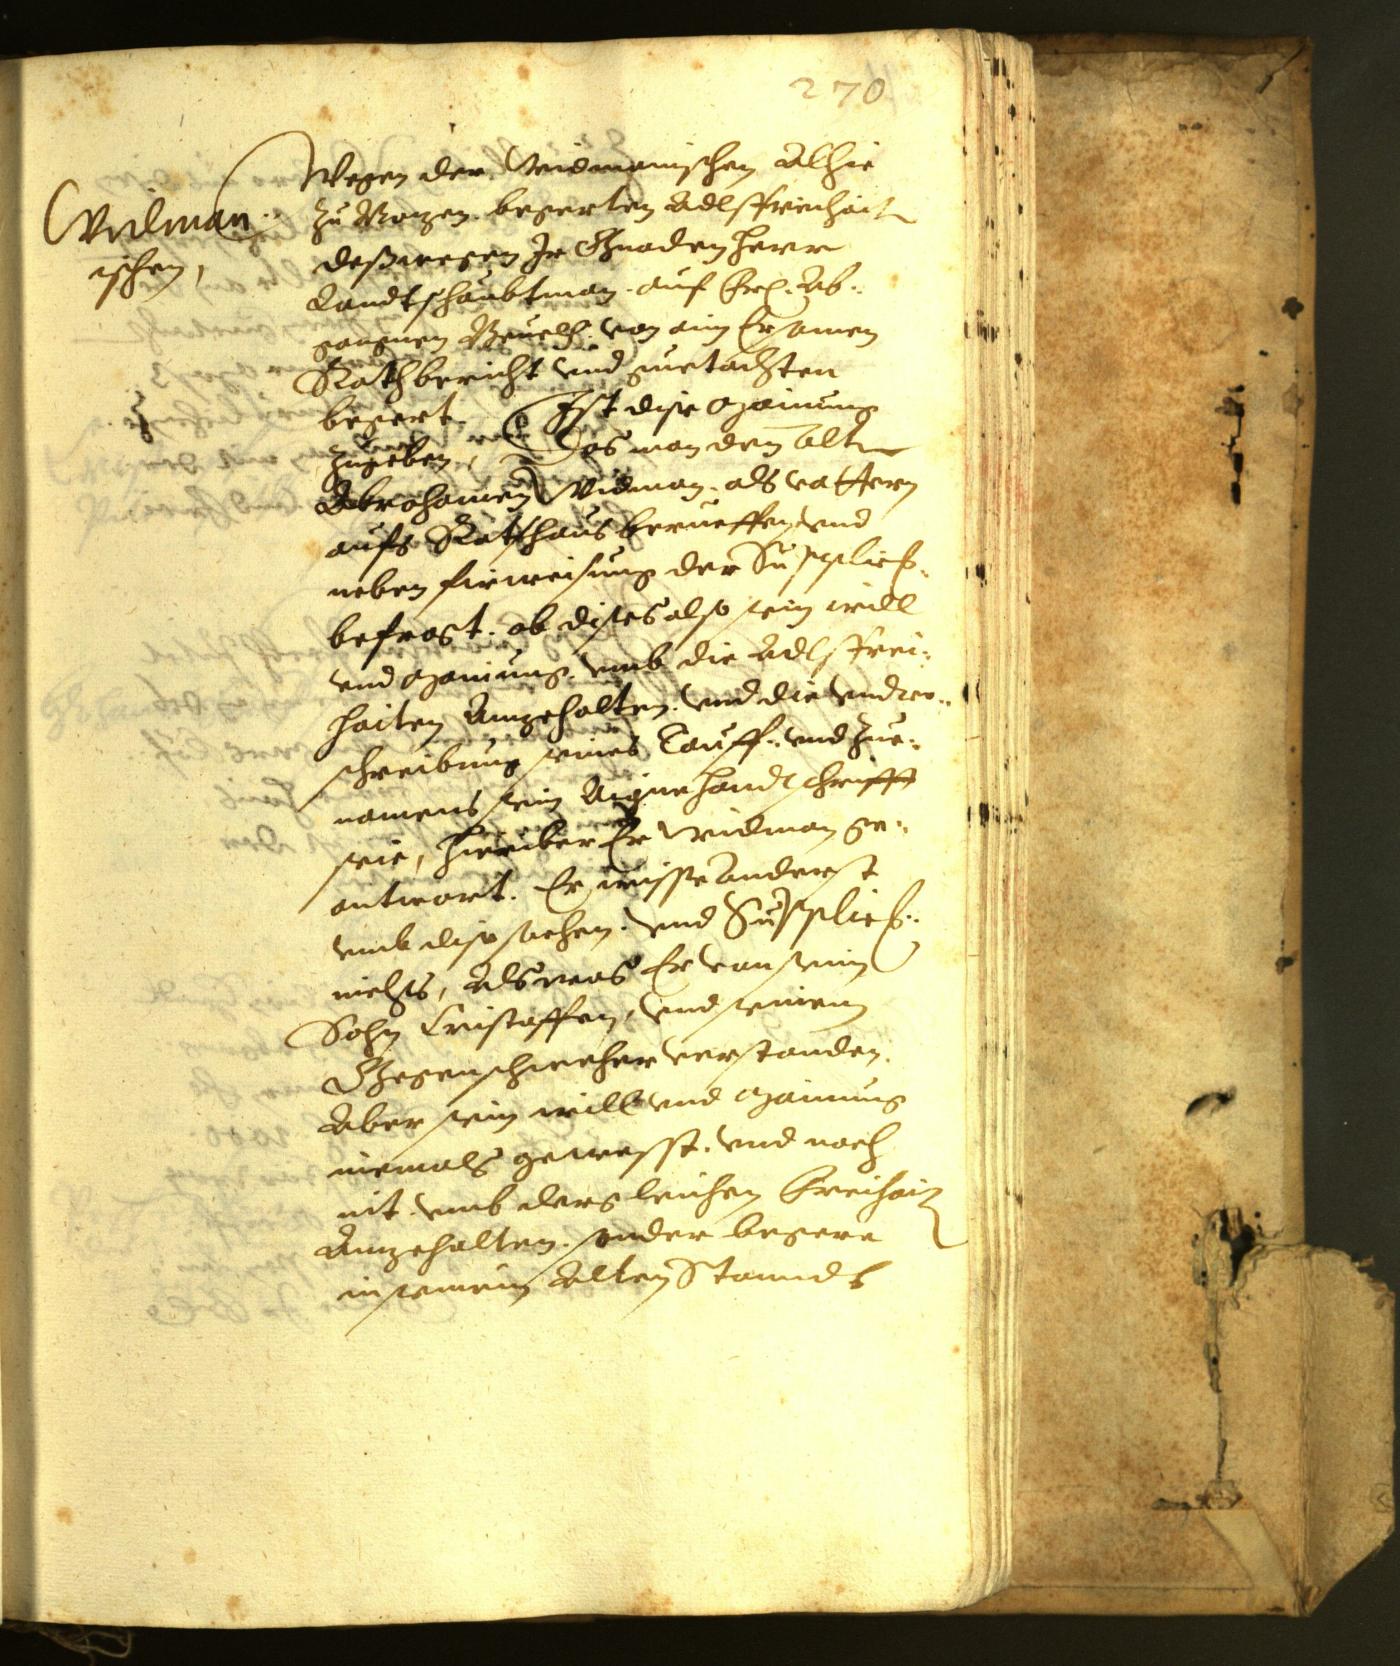 270
Widman
ischen,
Wegen der Widmanischen Alhie
zu Bozen begerten Adlsfreihait
deßwegen Ir Gnaden Herr
Landtshaubtman auf
Beuelch von aim Ersamen
Rath bericht und guetachten
begert. Ist dise Mainung
zugeben, Das man den alten
Abrahamen Widman als vattern
aufs Rathhaus berueffen und
neben firweisung der Supplica:
befragt. ob dises also sein will
und Mainung umb die Adlsfrei:
haiten Anzehalten, und die under:
schreibung seines Tauff: und Zue:
namens sein Aigne handtschrifft
seie, Hieriber Er Widman ge:
antwort. Er wisse Anderst
umb dise sachen und Supplica:
nichts, Als was Er von seim
Sohn Cristoffen, und seinem
Gegenschweher verstanden.
Aber sein will und Mainung
niemals gewesst, und noch
nit umb dergleichen Freihait
Anzehalten. sonder begere
in seinem Alten Stannds